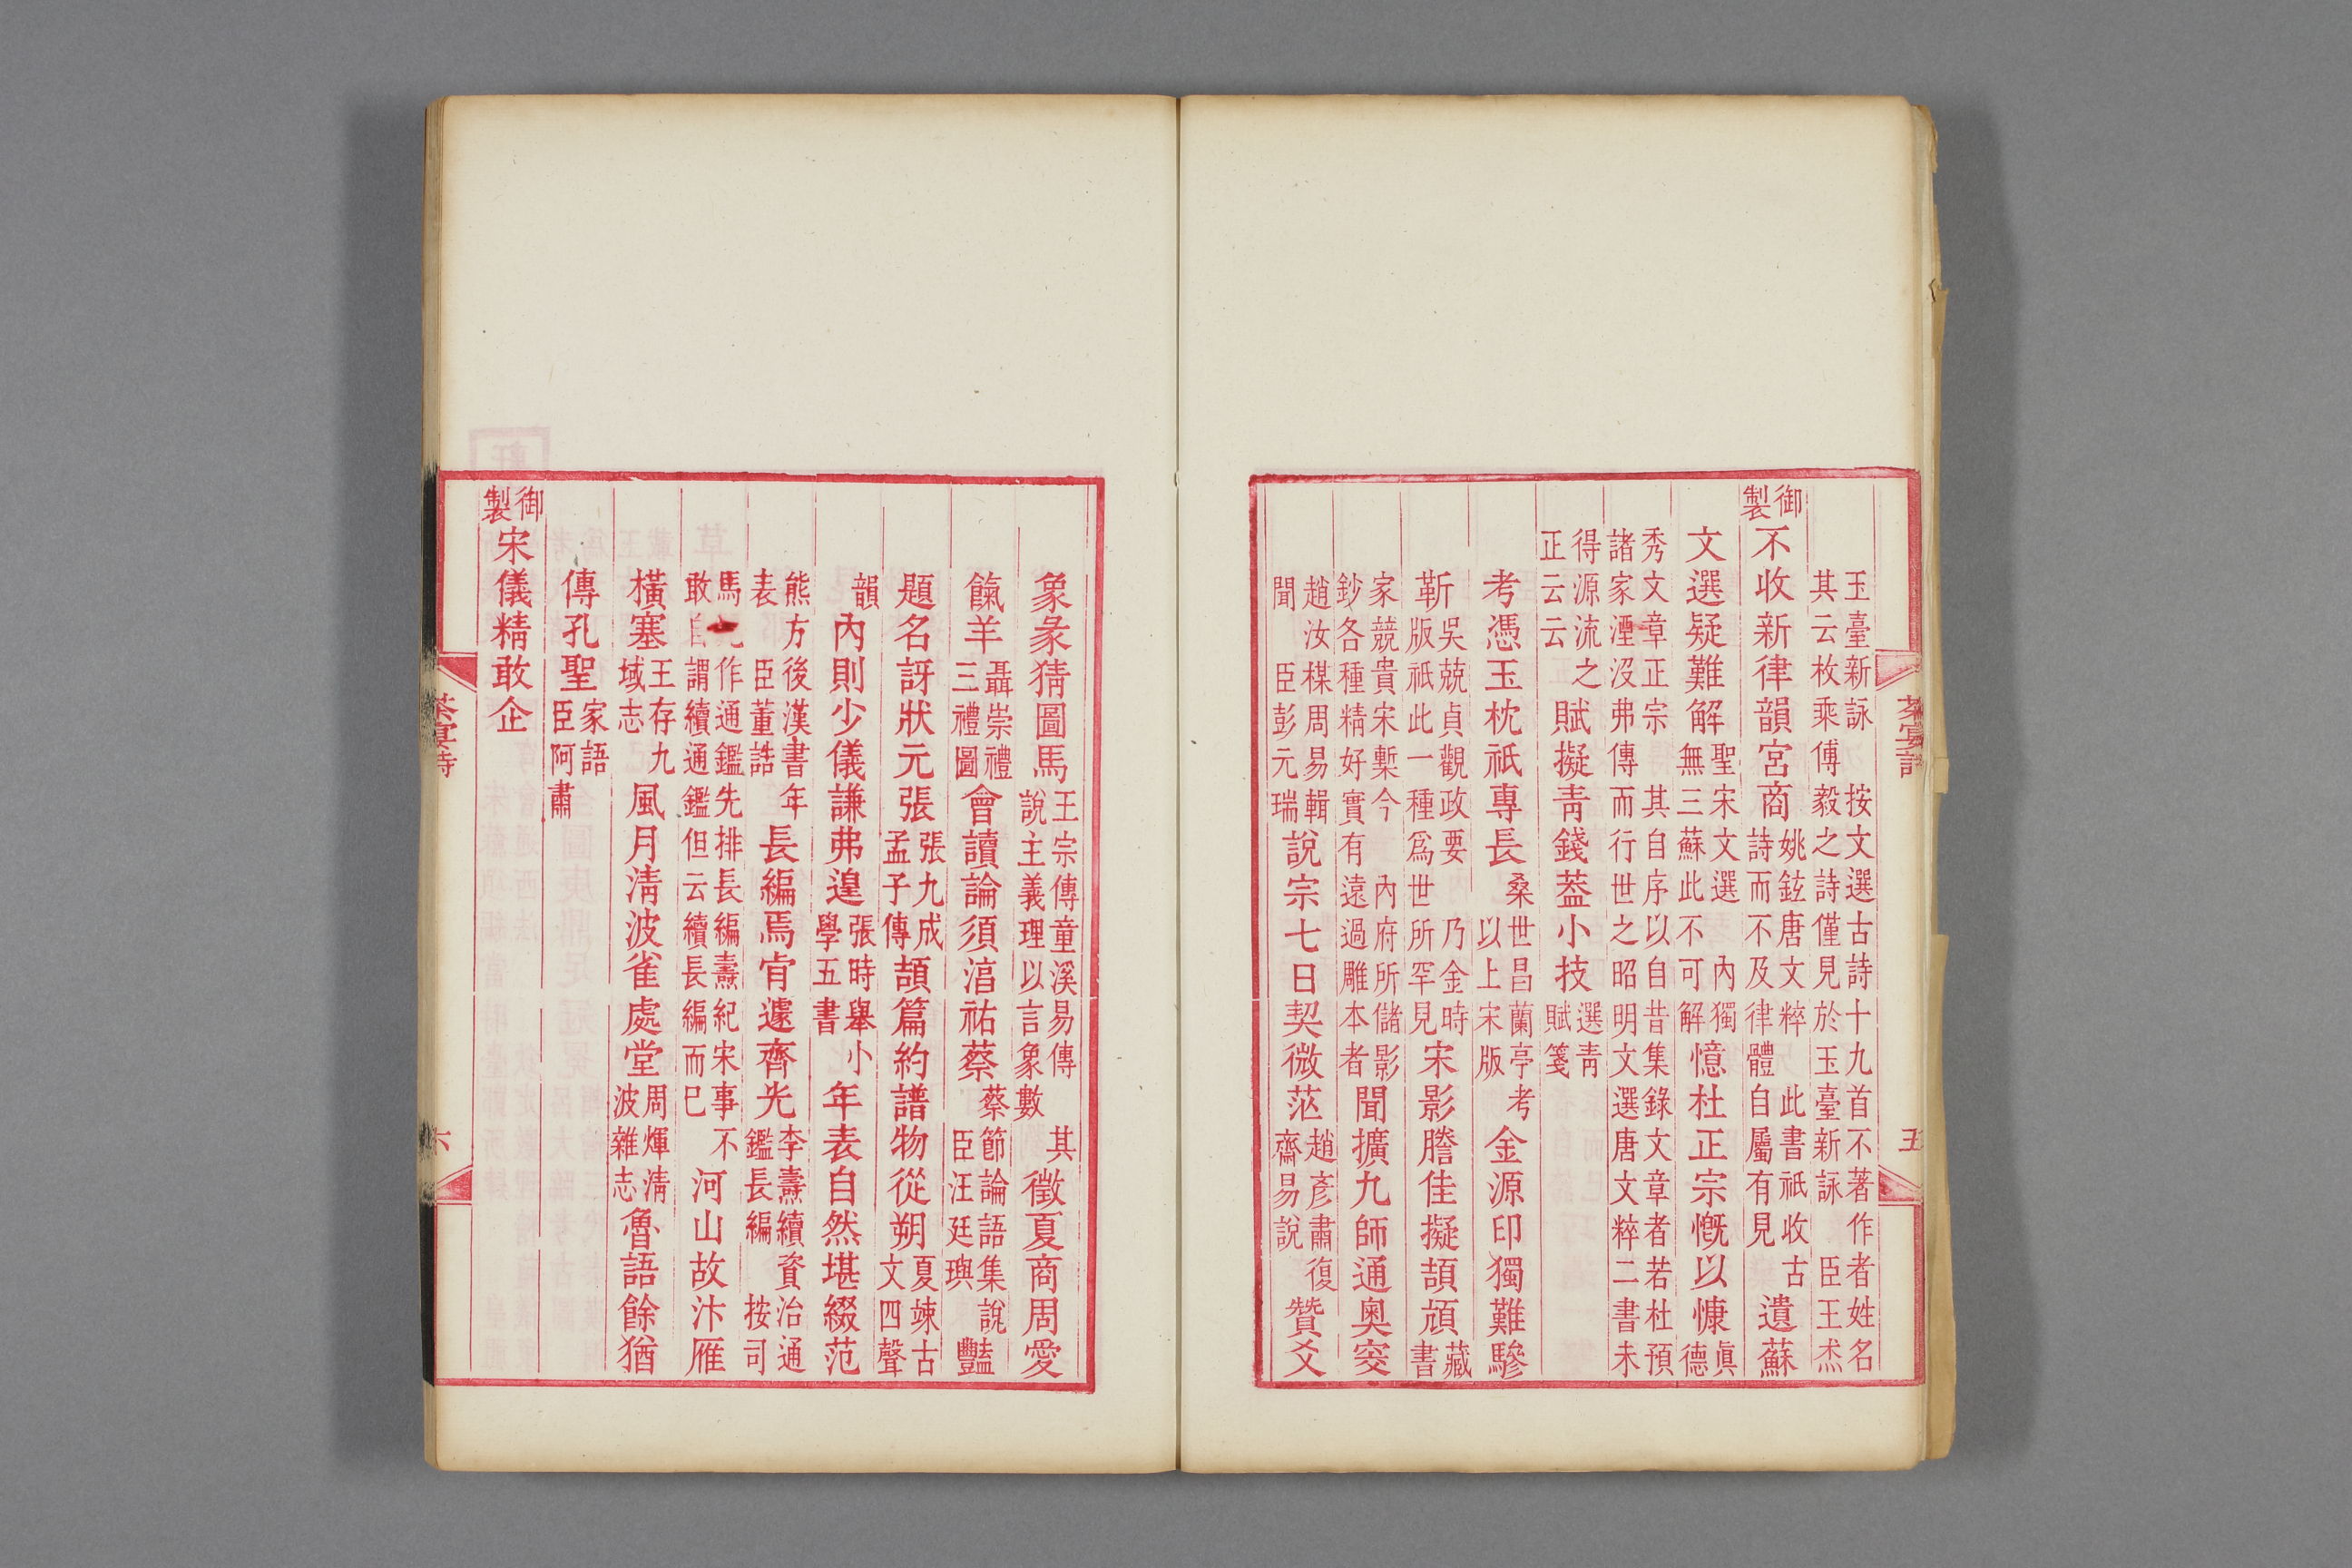 玉臺新詠　按文選古詩十九首不著作者姓名
其云枚乘傅毅之詩僅見於玉臺新詠　臣王杰
御製不收新律韻宮商
姚鉉唐文粹　此書祇收古
詩而不及律體自屬有見
遺蘇
文選疑難解
聖宋文選　內獨
無三蘇此不可解
憶杜正宗慨以慷
真
德
秀文章正宗　其自序以自昔集錄文章者若杜預
諸家湮沒弗傳而行世之昭明文選唐文粹二書未
得源流之
正云云
賦擬青錢葢小技
選青
賦箋
考憑玉枕祇專長
桑世昌蘭亭考
以上宋版
金源印獨難驂
靳
吳兢貞觀政要　乃金時
版祇此一種爲世所罕見
宋影謄佳擬頡頏
藏
書
家競貴宋槧今　內府所儲影
鈔各種精好實有遠過雕本者
聞擴九師通奧窔
趙汝楳周易輯
聞　臣彭元瑞
說宗七日契微茫
趙彥肅復
齋易說
贊爻
茶宴詩
五
象彖猜圖馬
王宗傳童溪易傳　其
說主義理以言象數
徵夏商周愛
餼羊
聶崇禮
三禮圖
會讀論須湻祐蔡
蔡節論語集說
臣汪廷璵
豔
題名訝狀元張
張九成
孟子傳
頡篇約譜物從朔
夏竦古
文四聲
韻
內則少儀謙弗遑
張時舉小
學五書
年表自然堪綴范
熊方後漢書年
表　臣董誥
長編焉肯遽齊先
李燾續資治通
鑑長編　按司
馬作通鑑先排長編燾紀宋事不
敢自謂續通鑑但云續長編而已
河山故汴雁
橫塞
王存九
域志
風月清波雀處堂
周煇清
波雜志
魯語餘猶
傳孔聖
家語
臣阿肅
御製宋儀精敢企
茶宴詩
六